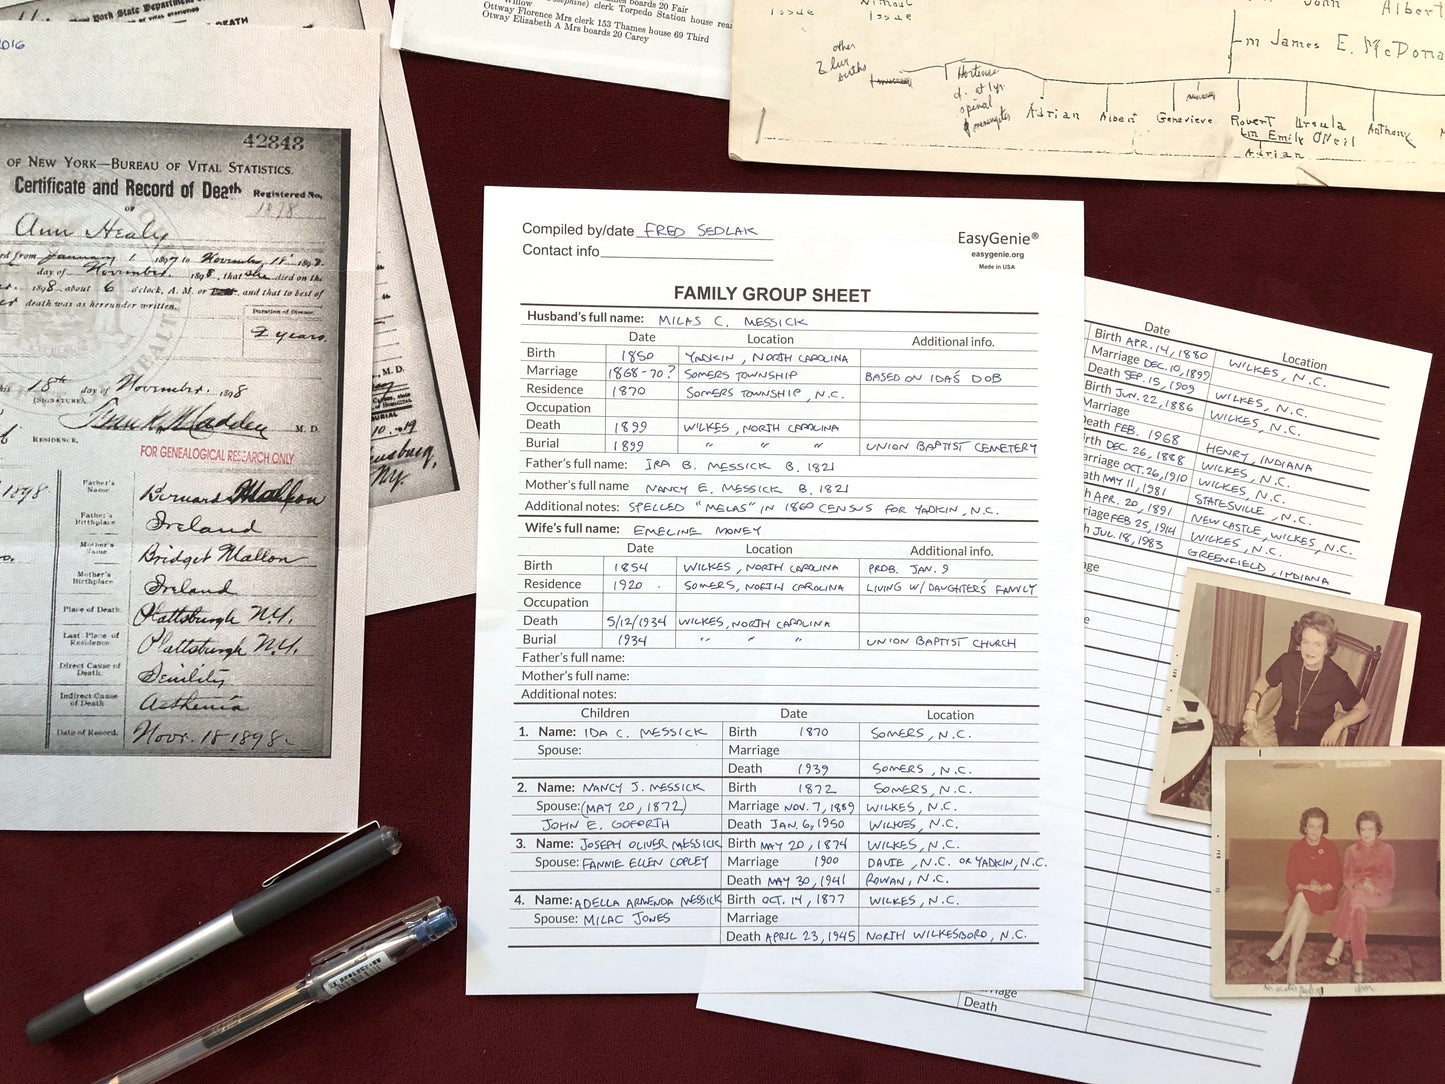 2016
New York State Department of
OF VITAL STATISTICS
DEATH
42843
OF NEW YORK—BUREAU OF VITAL STATISTICS.
Certificate and Record of Death
Registered No.
OF
1878
Ann Healy
from January 1 1897 to November 18 1898
day of November. 1898, that she died on the
1898, about 6 o'clock, A. M. or and that to best of
death was as hereunder written.
Duration of Disease.
2 years.
18th day of November. 1898
(SIGNATURE)
Frank Madden M. D.
RESIDENCE.
FOR GENEALOGICAL RESEARCH ONLY
1898.
Father's Name
Bernard Mallon
Father's Birthplace
Ireland
Mother's Name
Bridget Mallon
Mother's Birthplace
Ireland
Place of Death.
Plattsburgh N.Y.
Last Place of Residence
Plattsburgh N.Y.
Direct Cause of Death.
Senility
Indirect Cause of Death
Asthenia
Date of Record.
Novr. 18 1898.
M. D.
BURIAL
NY.
boards 20 Fair
Willow
clerk Torpedo Station house
Ottway Florence Mrs clerk 153 Thames house 69 Third
Otway Elizabeth A Mrs boards 20 Carey
Issue
Without Issue
John Albert
m James E. McDona
other
2 liv
births
Hortense
d. at 1 yr
spinal
meningitis
Adrian Albert Genevieve Robert Ursula Anthony
m Emily O'Neil
Adrian
Compiled by/date FRED SEDLAK
Contact info
EasyGenie®
easygenie.org
Made in USA
FAMILY GROUP SHEET
Husband's full name: MILAS C. MESSICK
Date Location Additional info.
Birth 1850 YADKIN, NORTH CAROLINA
Marriage 1868-70? SOMERS TOWNSHIP BASED ON IDA'S DOB
Residence 1870 SOMERS TOWNSHIP, N.C.
Occupation
Death 1899 WILKES, NORTH CAROLINA
Burial 1899 " " " UNION BAPTIST CEMETERY
Father's full name: IRA B. MESSICK B. 1821
Mother's full name NANCY E. MESSICK B. 1821
Additional notes: SPELLED "MELAS" IN 1860 CENSUS FOR YADKIN, N.C.
Wife's full name: EMELINE MONEY
Date Location Additional info.
Birth 1854 WILKES, NORTH CAROLINA PROB. JAN. 9
Residence 1920 . SOMERS, NORTH CAROLINA LIVING W/ DAUGHTER'S FAMILY
Occupation
Death 5/12/1934 WILKES, NORTH CAROLINA
Burial 1934 " " " UNION BAPTIST CHURCH
Father's full name:
Mother's full name:
Additional notes:
Children Date Location
1. Name: IDA C. MESSICK Birth 1870 SOMERS, N.C.
Spouse: Marriage
Death 1939 SOMERS, N.C.
2. Name: NANCY J. MESSICK Birth 1872 SOMERS, N.C.
Spouse: (MAY 20, 1872) Marriage NOV. 7, 1889 WILKES, N.C.
JOHN E. GOFORTH Death JAN. 6, 1950 WILKES, N.C.
3. Name: JOSEPH OLIVER MESSICK Birth MAY 20, 1874 WILKES, N.C.
Spouse: FANNIE ELLEN COPLEY Marriage 1900 DAVIE, N.C. OR YADKIN, N.C.
Death MAY 30, 1941 ROWAN, N.C.
4. Name: ADELLA ARMENDA MESSICK Birth OCT. 14, 1877 WILKES, N.C.
Spouse: MILAC JONES Marriage
Death APRIL 23, 1945 NORTH WILKESBORO, N.C.
Date Location
Birth APR. 14, 1880 WILKES, N.C.
Marriage DEC. 10, 1899
Death SEP. 15, 1909 WILKES, N.C.
Birth JUN. 22, 1886 WILKES, N.C.
Marriage
Death FEB. 1968 HENRY, INDIANA
Birth DEC. 26, 1888 WILKES, N.C.
Marriage OCT. 26, 1910 WILKES, N.C.
Death MAY 11, 1981 STATESVILLE, N.C.
APR. 20, 1891 NEW CASTLE, WILKES, N.C.
Marriage FEB 25, 1914 WILKES, N.C.
JUL. 18, 1983 GREENFIELD, INDIANA
Marriage
Death
FEB